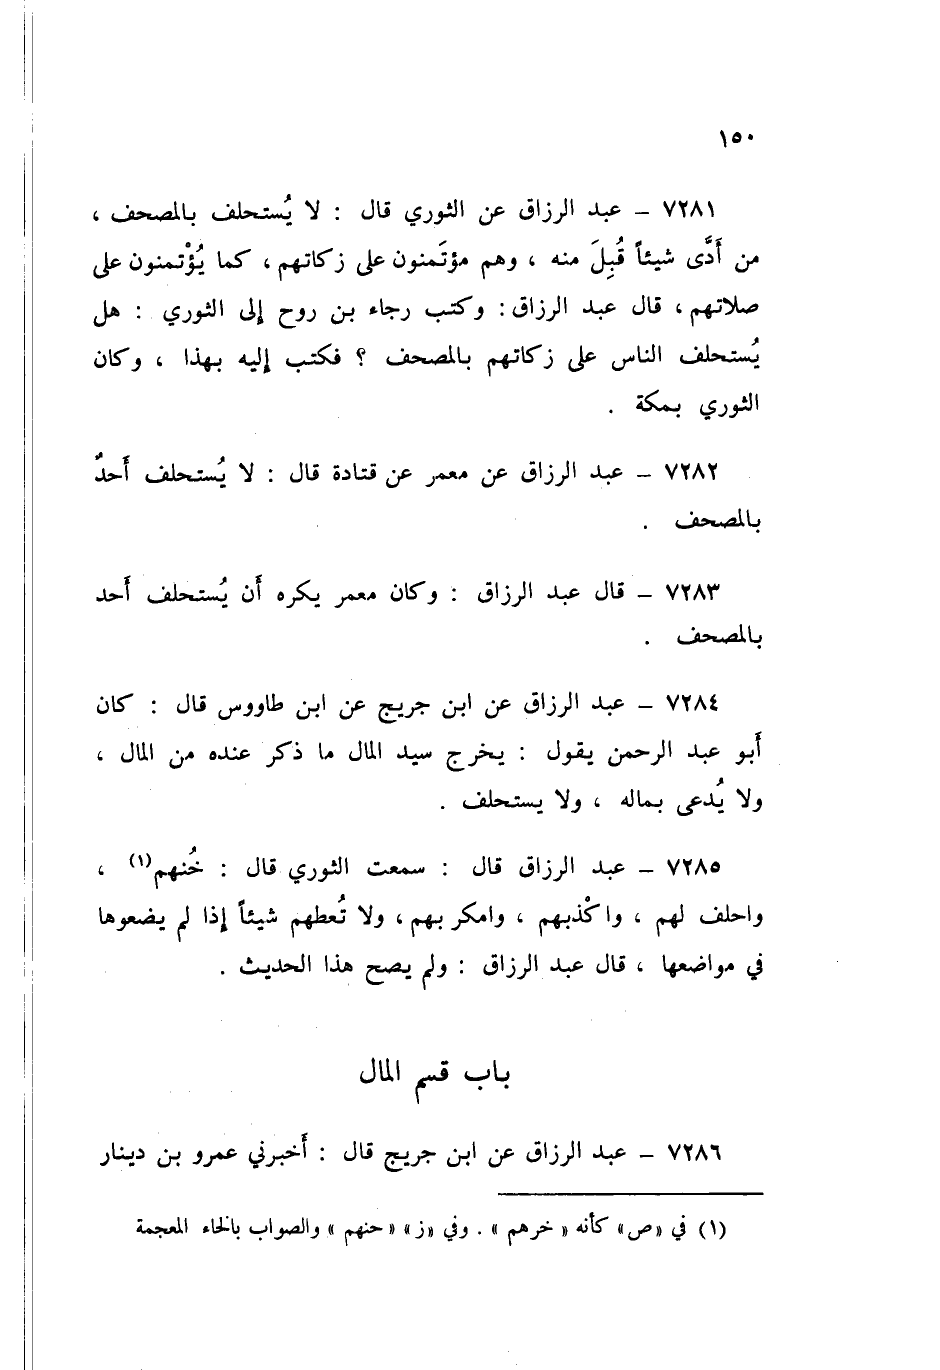 ١٥٠
٧٢٨١ – عبد الرزاق عن الثوري قال : لا يُستحلف بالمصحف ،
من أَدَّى شيئاً قُبِلَ منه ، وهم مؤتَمنون على زكاتهم ، كما يُؤْتمنون على
صلاتهم ، قال عبد الرزاق : وكتب رجاء بن روح إلى الثوري : هل
يُستحلف الناس على زكاتهم بالمصحف ؟ فكتب إليه بهذا ، وكان
الثوري بمكة .
٧٢٨٢ – عبد الرزاق عن معمر عن قتادة قال : لا يُستحلف أَحدٌ
بالمصحف .
٧٢٨٣ – قال عبد الرزاق : وكان معمر يكره أَن يُستحلف أَحد
بالمصحف .
٧٢٨٤ – عبد الرزاق عن ابن جريج عن ابن طاووس قال : كان
أَبو عبد الرحمن يقول : يخرج سيد المال ما ذكر عنده من المال ،
ولا يُدعى بماله ، ولا يستحلف .
٧٢٨٥ – عبد الرزاق قال : سمعت الثوري قال : خُنهم(١) ،
واحلف لهم ، واكْذبهم ، وامكر بهم ، ولا تُعطهم شيئاً إذا لم يضعوها
في مواضعها ، قال عبد الرزاق : ولم يصح هذا الحديث .
باب قسم المال
٧٢٨٦ – عبد الرزاق عن ابن جريج قال : أَخبرني عمرو بن دينار
(١) في «ص» كأنه « خرهم » . وفي «ز» «حنهم » والصواب بالخاء المعجمة